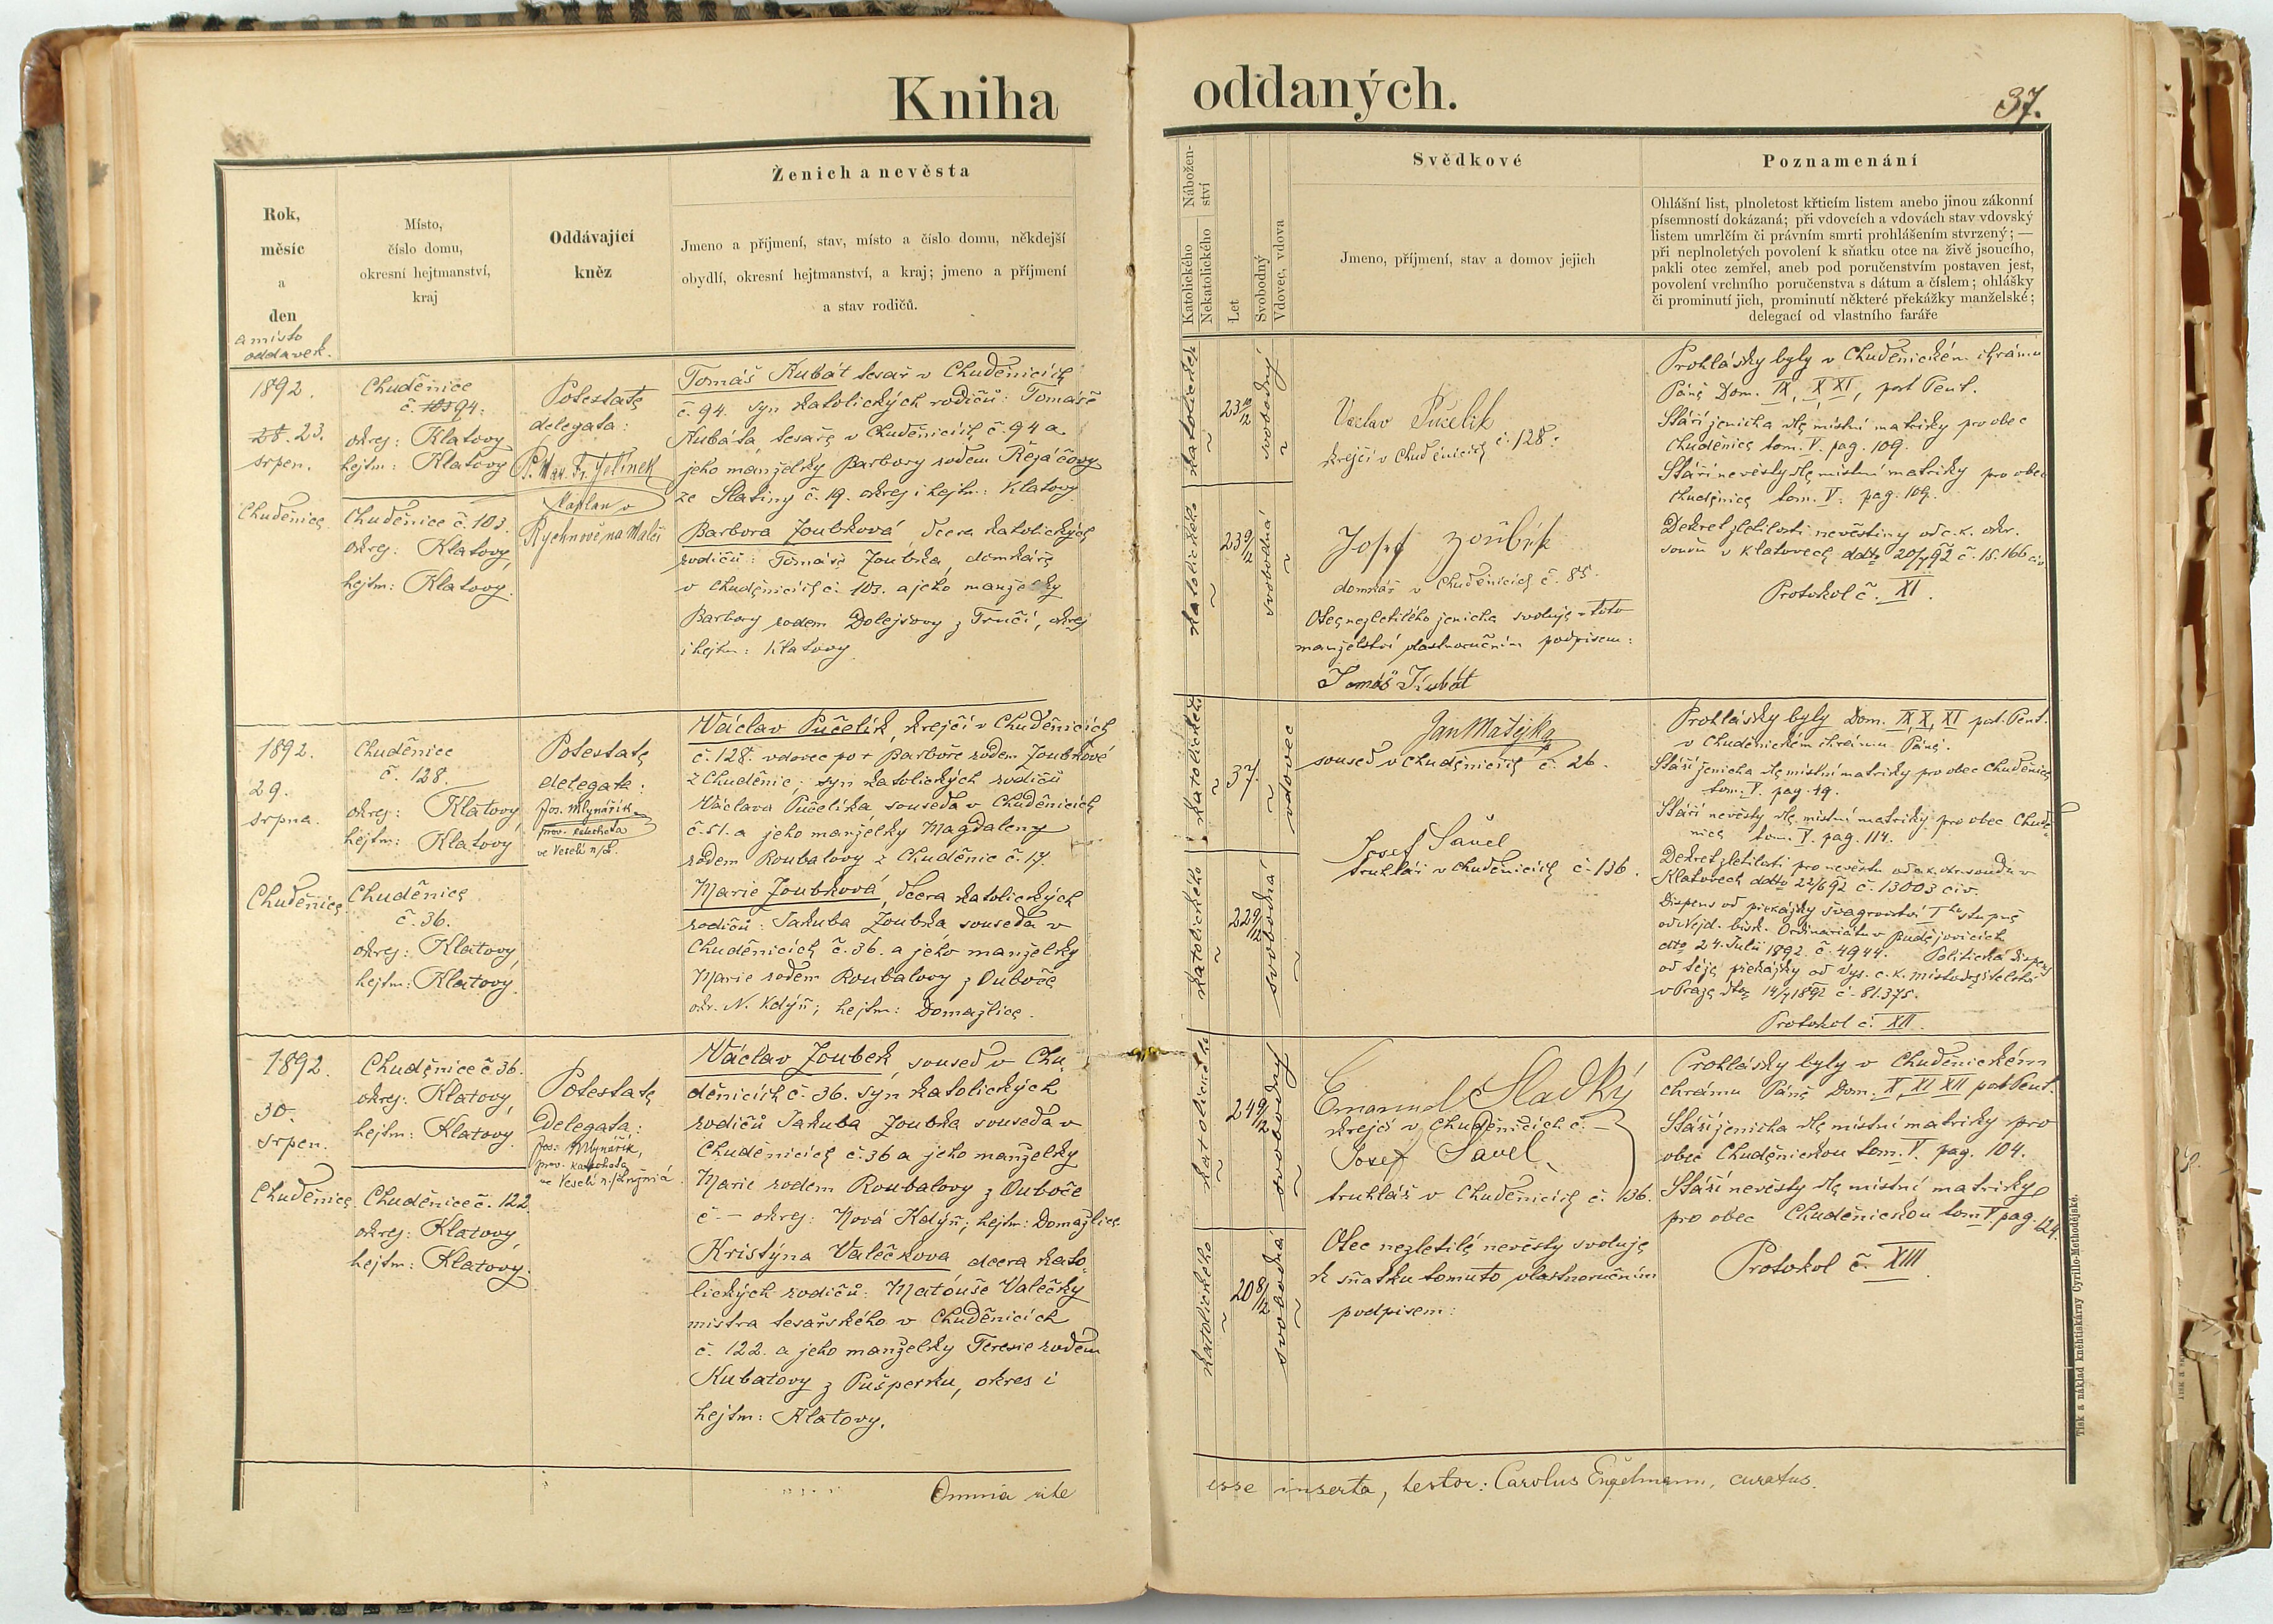 Kniha oddaných.
37.
Rok,
měsíc
a
den
a místo
oddavek.
Místo,
číslo domu,
okresní hejtmanství,
kraj
Oddávající
kněz
Ženich a nevěsta
Jmeno a příjmení, stav, místo a číslo domu, někdejší
obydlí, okresní hejtmanství, a kraj; jmeno a příjmení
a stav rodičů.
Katolického
Nekatolického
Nábožen-
ství
Let
Svobodný
Vdovec, vdova
Svědkové
Jmeno, příjmení, stav a domov jejich
Poznamenání
Ohlášní list, plnoletost křticím listem anebo jinou zákonní
písemností dokázaná; při vdovcích a vdovách stav vdovský
listem umrlčím či právním smrti prohlášením stvrzený; —
při neplnoletých povolení k sňatku otce na živě jsoucího,
pakli otec zemřel, aneb pod poručenstvím postaven jest,
povolení vrchního poručenstva s dátum a číslem; ohlášky
či prominutí jich, prominutí některé překážky manželské;
delegací od vlastního faráře
1892.
28. 23.
srpen.
Chuděnice
Chuděnice
č. 103 94.
okres: Klatovy
hejtm: Klatovy
Chuděnice č. 103.
okres: Klatovy,
hejtm: Klatovy.
Potestate
delegata:
P. Max. Fr. Jelínek
kaplan v
Rychnově na Malši
Tomáš Kubát tesař v Chuděnicích
č. 94. syn katolických rodičů: Tomáše
Kubáta tesaře v Chuděnicích č. 94 a
jeho manželky Barbory rodem Řezáčovy
ze Slatiny č. 19. okres i hejtm: Klatovy
Barbora Joubková, dcera katolických
rodičů: Tomáše Joubka, domkáře
v Chuděnicích č. 103. a jeho manželky
Barbory rodem Dolejšovy z Trnčí, okres
i hejtm: Klatovy.
katolického
23 10/12
svobodný
katolického
23 9/12
svobodná
Václav Pučelik
krejčí v Chuděnicích č. 128.
Josef Zoubek
domkář v Chuděnicích č. 85.
Otec nezletilého ženicha svoluje v toto
manželství vlastnoručním podpisem:
Tomáš Kubát
Prohlášky byly v Chuděnickém chrámu
Páně Dom. IX, X XI, post Pent.
Stáří ženicha dle místní matriky pro obec
Chuděnice tom. V. pag. 109.
Stáří nevěsty dle místní matriky pro obec
Chuděnice tom. V. pag. 109.
Dekret zletilosti nevěstiny od c. k. okr.
soudu v Klatovech ddto 20/7 92 č. 15.166 civ.
Protokol č. XI.
1892.
29.
srpna.
Chuděnice
Chuděnice
č. 128.
okres: Klatovy,
hejtm: Klatovy
Chuděnice
č. 36.
okres: Klatovy,
hejtm: Klatovy.
Potestate
delegata:
Jos. Mlynářík
prov. katecheta
ve Veselí n/L.
Václav Pučelík, krejčí v Chuděnicích
č. 128. vdovec po † Barboře rodem Joubkové
z Chuděnic, syn katolických rodičů
Václava Pučelíka, souseda v Chuděnicích
č. 51. a jeho manželky Magdaleny
rodem Roubalovy z Chuděnic č. 17.
Marie Joubková, dcera katolických
rodičů: Jakuba Joubka, souseda v
Chuděnicích č. 36. a jeho manželky
Marie rodem Roubalovy z Ouboče
okr. N. Kdýň; hejtm: Domažlice.
katolického
37.
vdovec
katolického
22 9/12
svobodná
Jan Matějka
soused v Chuděnicích č. 26.
Josef Šavel
truhlář v Chuděnicích č. 136.
Prohlášky byly Dom. IX, X, XI post. Pent.
v Chuděnickém chrámu Páně.
Stáří ženicha dle místní matriky pro obec Chuděnice
tom. V. pag. 19.
Stáří nevěsty dle místní matriky pro obec Chudě-
nice tom. V. pag. 114.
Dekret zletilosti pro nevěstu od c. k. okr. soudu v
Klatovech ddto 22/6 92 č. 13003 civ.
Dispens od překážky švagrovství I ho stupně
od Nejd. bisk. Ordinariátu v Budějovicích
dto 24. Julii 1892. č. 4944. Politická dispens
od téže překážky od Vys. c. k. místodržitelství
v Praze dto 14/7 1892 č. 81.375.
Protokol č. XII.
1892.
30.
srpen.
Chuděnice
Chuděnice č 36.
okres: Klatovy,
hejtm: Klatovy.
Chuděnice č. 122
okres: Klatovy,
hejtm: Klatovy.
Potestate
Delegata:
Jos. Mlynářík,
prov. katecheta
ve Veselí n./Lužnicí
Václav Joubek, soused v Chu-
děnicích č. 36. syn katolických
rodičů Jakuba Joubka souseda v
Chuděnicích č. 36 a jeho manželky
Marie rodem Roubalovy z Ouboče
č. — okres: Nová Kdýň; hejtm: Domažlice
Kristýna Valečkova dcera kato-
lických rodičů: Matouše Valečky
mistra tesařského v Chuděnicích
č. 122. a jeho manželky Teresie rodem
Kubatovy z Pušperku, okres i
hejtm: Klatovy.
katolického
24 9/12
svobodný
katolického
20 8/12
svobodná
Emanuel Sladký
krejčí v Chuděnicích č. —
Josef Šavel,
truhlář v Chuděnicích č. 136.
Otec nezletilé nevěsty svoluje
k sňatku tomuto vlastnoručním
podpisem:
Prohlášky byly v Chuděnickém
chrámu Páně Dom. X, XI XII post Pent.
Stáří ženicha dle místní matriky pro
obec Chuděnickou tom. V. pag. 104.
Stáří nevěsty dle místní matriky
pro obec Chuděnickou tom V. pag. 124.
Protokol č. XIII.
Omnia rite esse inserta, testor: Carolus Engelmann, curatus.
Tisk a náklad kněhtiskárny Cyrillo-Methodějské.